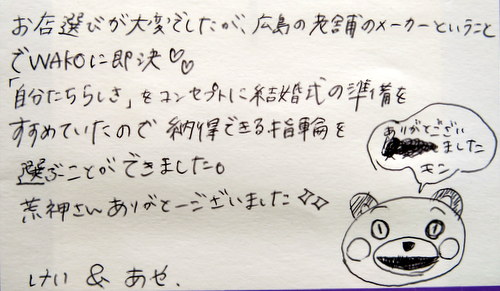 お店選びが大変でしたが、広島の老舗のメーカーということ
でWAKOに即決♡♡
「自分たちらしさ」をコンセプトに結婚式の準備を
すすめていたので納得できる指輪を
選ぶことができました。
荒神さんありがとーございました
けい & あや、
ありがとうござい
ました
モン